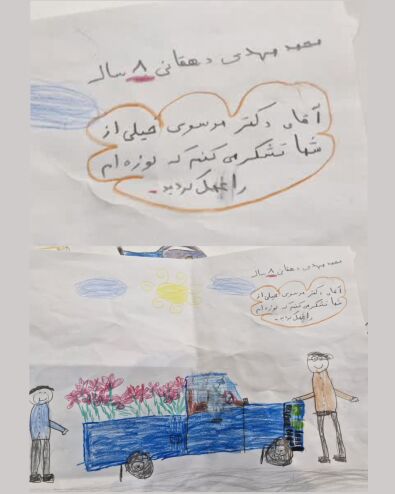 محمد مهدی دهقانی ۸ ساله
آقای دکتر موسوی خیلی از
شما تشکر می کنم که لوزه ام
را عمل کردید.
محمد مهدی دهقانی ۸ ساله
آقای دکتر موسوی خیلی از
شما تشکر می کنم که لوزه ام
را عمل کردید.